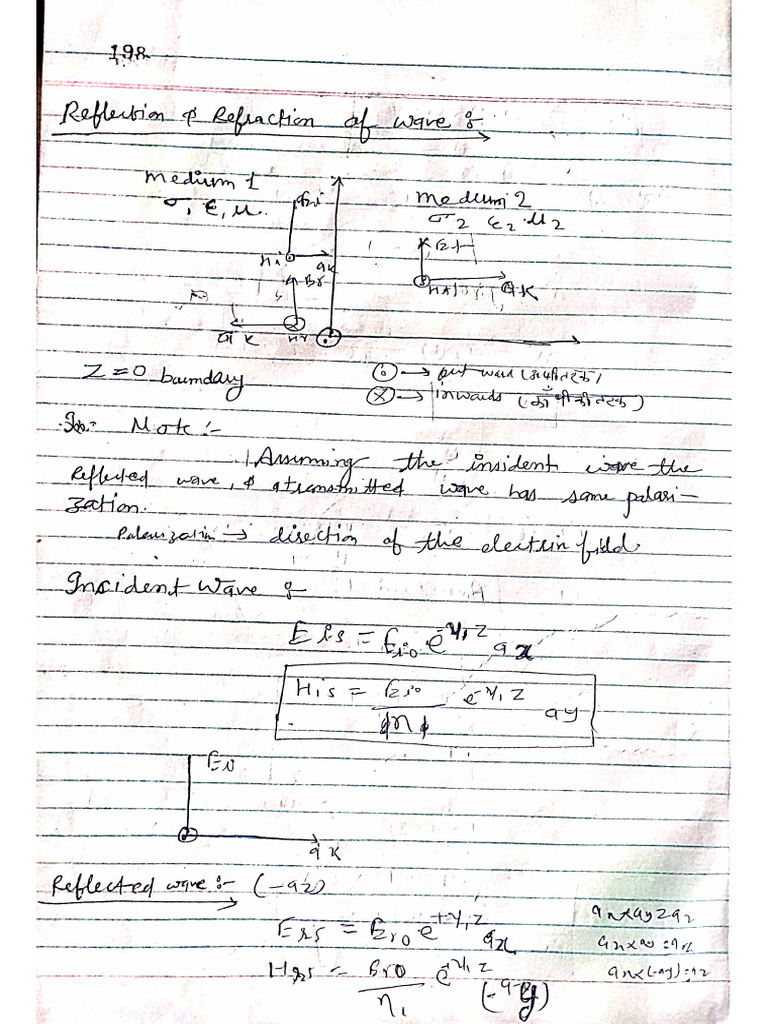 198
Reflection & Refraction of wave :-
medium 1
σ, ε, μ.
Medium 2
σ2 ε2 μ2
Ei
Hi
ak
Er
ak
Hr
Et
Ht
ak
Z=0 boundary
⊙→ out ward
⊗→ inwards
Note :-
Assuming the insident wave the
Reflected wave, & transmitted wave has same polari-
zation.
Polarization → direction of the electric field.
Insident Wave :-
Eis = Eio e^-γ1z ax
His = Eio / |η| e^-γ1z ay
ak
Reflected wave :- (-az)
Ers = Ero e^+γ1z ax
Hrs = Ero / η1 e^γ1z (-ay)
ax×ay=az
ax×(-ay)=az